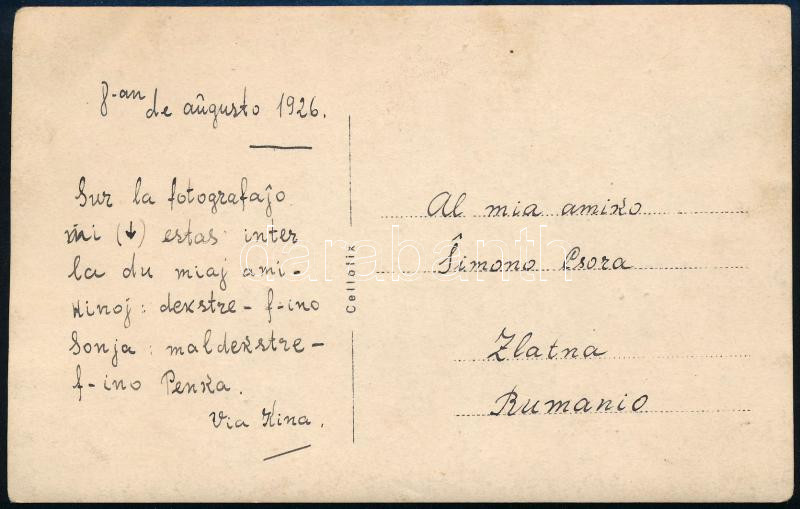 8-an
de aŭgusto 1926.
Sur la fotografaĵo
mi (↓) estas inter
la du miaj ami-
kinoj: dekstre - f-ino
Sonja: maldekstre -
f-ino Penka.
Via Kina.
Cellofix
Al mia amiko
Ŝimono Psora
Zlatna
Rumanio
darabanth